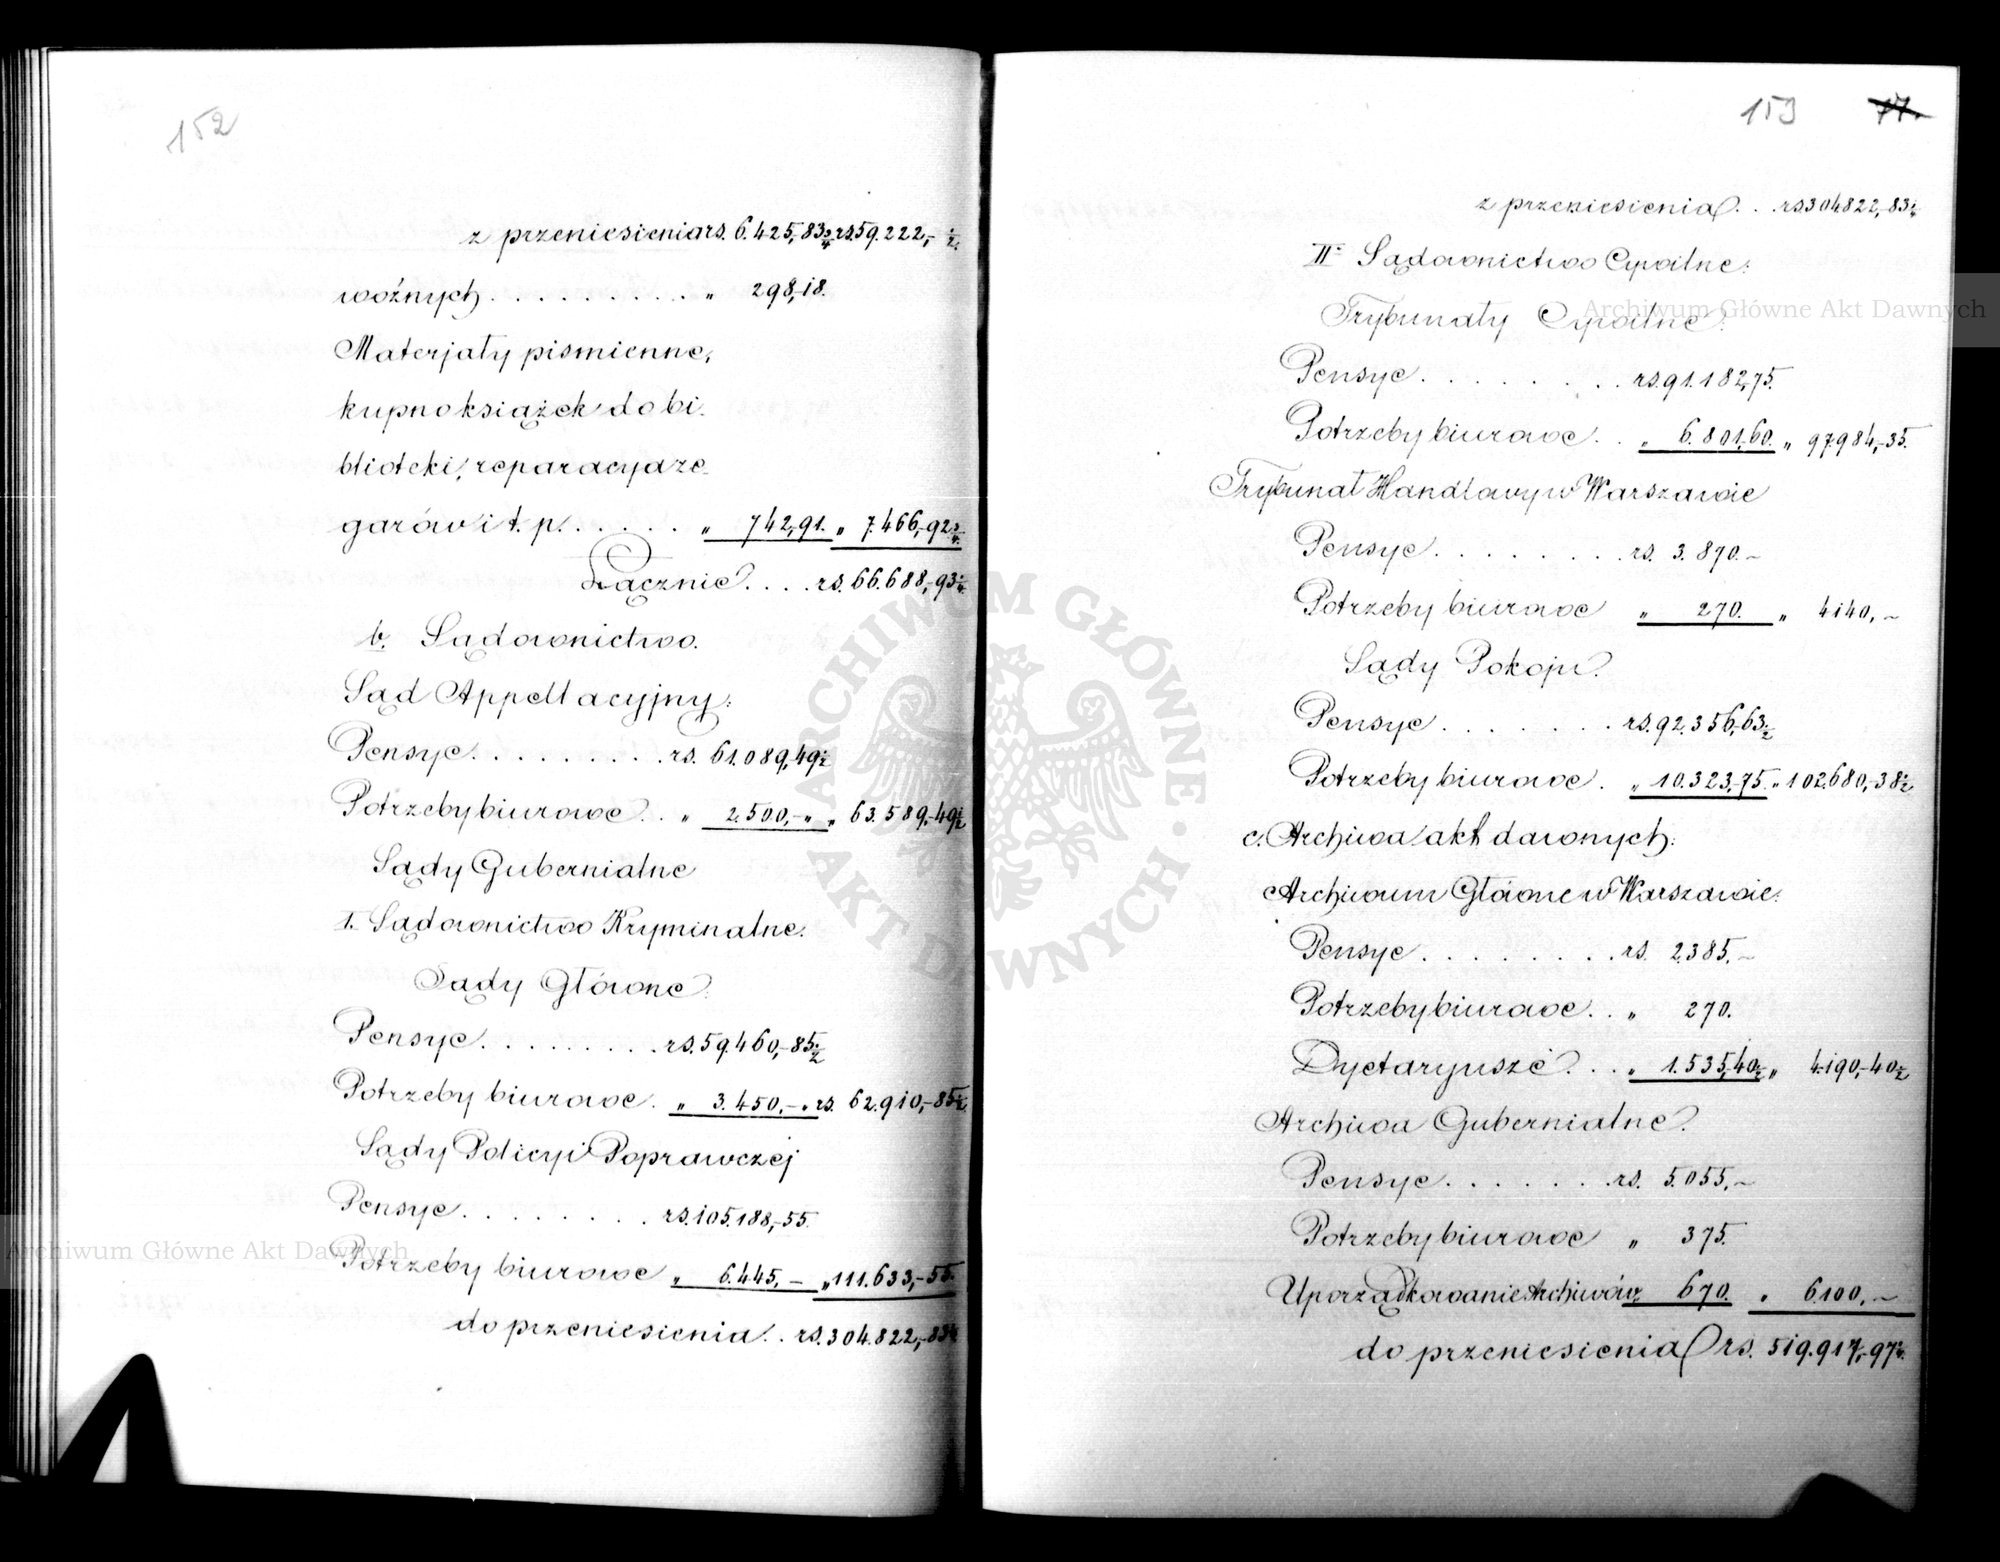 152
z przeniesienia rs. 6.425,83¾ rs 59.222,-½.
woźnych . . . . . . . . . . „ 298,18.
Materjały piśmienne,
kupno książek do bi-
blioteki, reparacya ze-
garów i t. p. . . . . . „ 742,91. „ 7.466,-92¾.
Łącznie . . . . rs. 66.688,-93¼.
b. Sądownictwo.
Sąd Appellacyjny:
Pensye . . . . . . . . . rs. 61.089,49½
Potrzeby biurowe . . „ 2.500,-„ „ 63.589,-49½
Sądy Gubernialne
I. Sądownictwo Kryminalne.
Sądy Główne:
Pensye . . . . . . . . . rs. 59.460,-85½
Potrzeby biurowe . „ 3.450,-„ rs. 62.910,-85½
Sądy Policyi Poprawczej
Pensye . . . . . . . . rs. 105.188,-55.
Potrzeby biurowe „ 6.445,- „ 111.633,-55.
do przeniesienia . . rs. 304.822,-83¼
153 17.
z przeniesienia . . rs 304822,-83¼
II. Sądownictwo Cywilne:
Trybunały Cywilne:
Pensye . . . . . . . . rs. 91.182,75.
Potrzeby biurowe . . „ 6.801,60. „ 97.984,-35.
Trybunał Handlowy w Warszawie
Pensye . . . . . . . . rs. 3.870.-
Potrzeby biurowe „ 270. „ 4140,-
Sądy Pokoju.
Pensye . . . . . . . rs. 92.356,-63½
Potrzeby biurowe . „ 10.323,-75. „ 102.680,-38½
c. Archiwa akt dawnych:
Archiwum Główne w Warszawie:
Pensye . . . . . . . . rs. 2.385.-
Potrzeby biurowe . . „ 270.
Dyetaryusze . . . „ 1.535,40½ „ 4.190,-40½
Archiwa Gubernialne.
Pensye . . . . . . . rs. 5.055,-
Potrzeby biurowe „ 375.
Uporządkowanie Archiwów „ 670. „ 6.100,-
do przeniesienia rs. 519.917,-97¼.
Archiwum Główne Akt Dawnych
Archiwum Główne Akt Dawnych
ARCHIWUM GŁÓWNE
AKT DAWNYCH